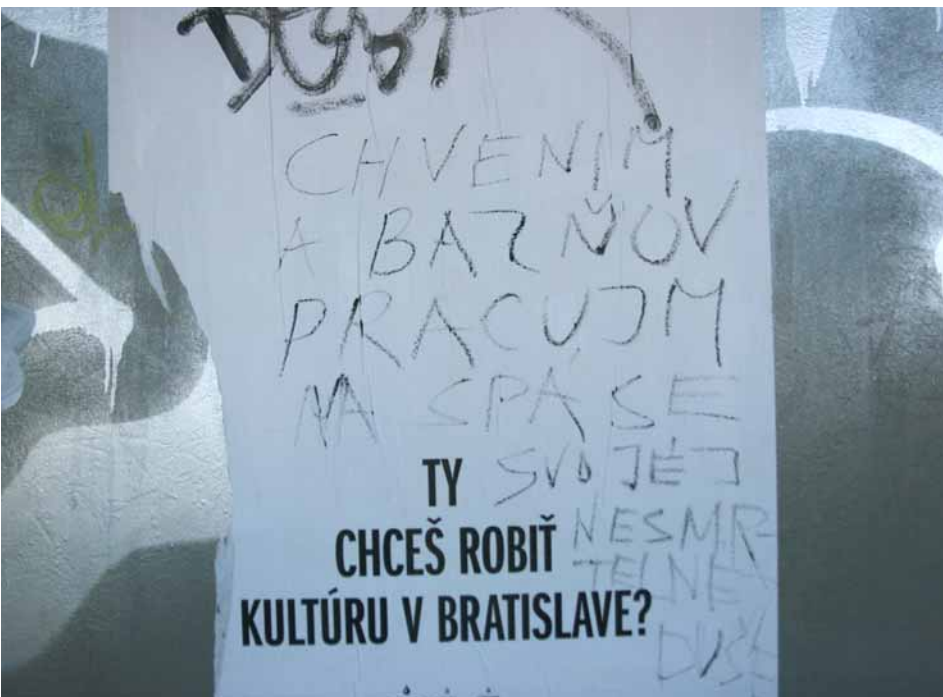 CHVENIM
A BAZŇOV
PRACUJM
NA SPÁSE
SVOJÉJ
NESMR-
TELNE
DUŠE
TY
CHCEŠ ROBIŤ
KULTÚRU V BRATISLAVE?